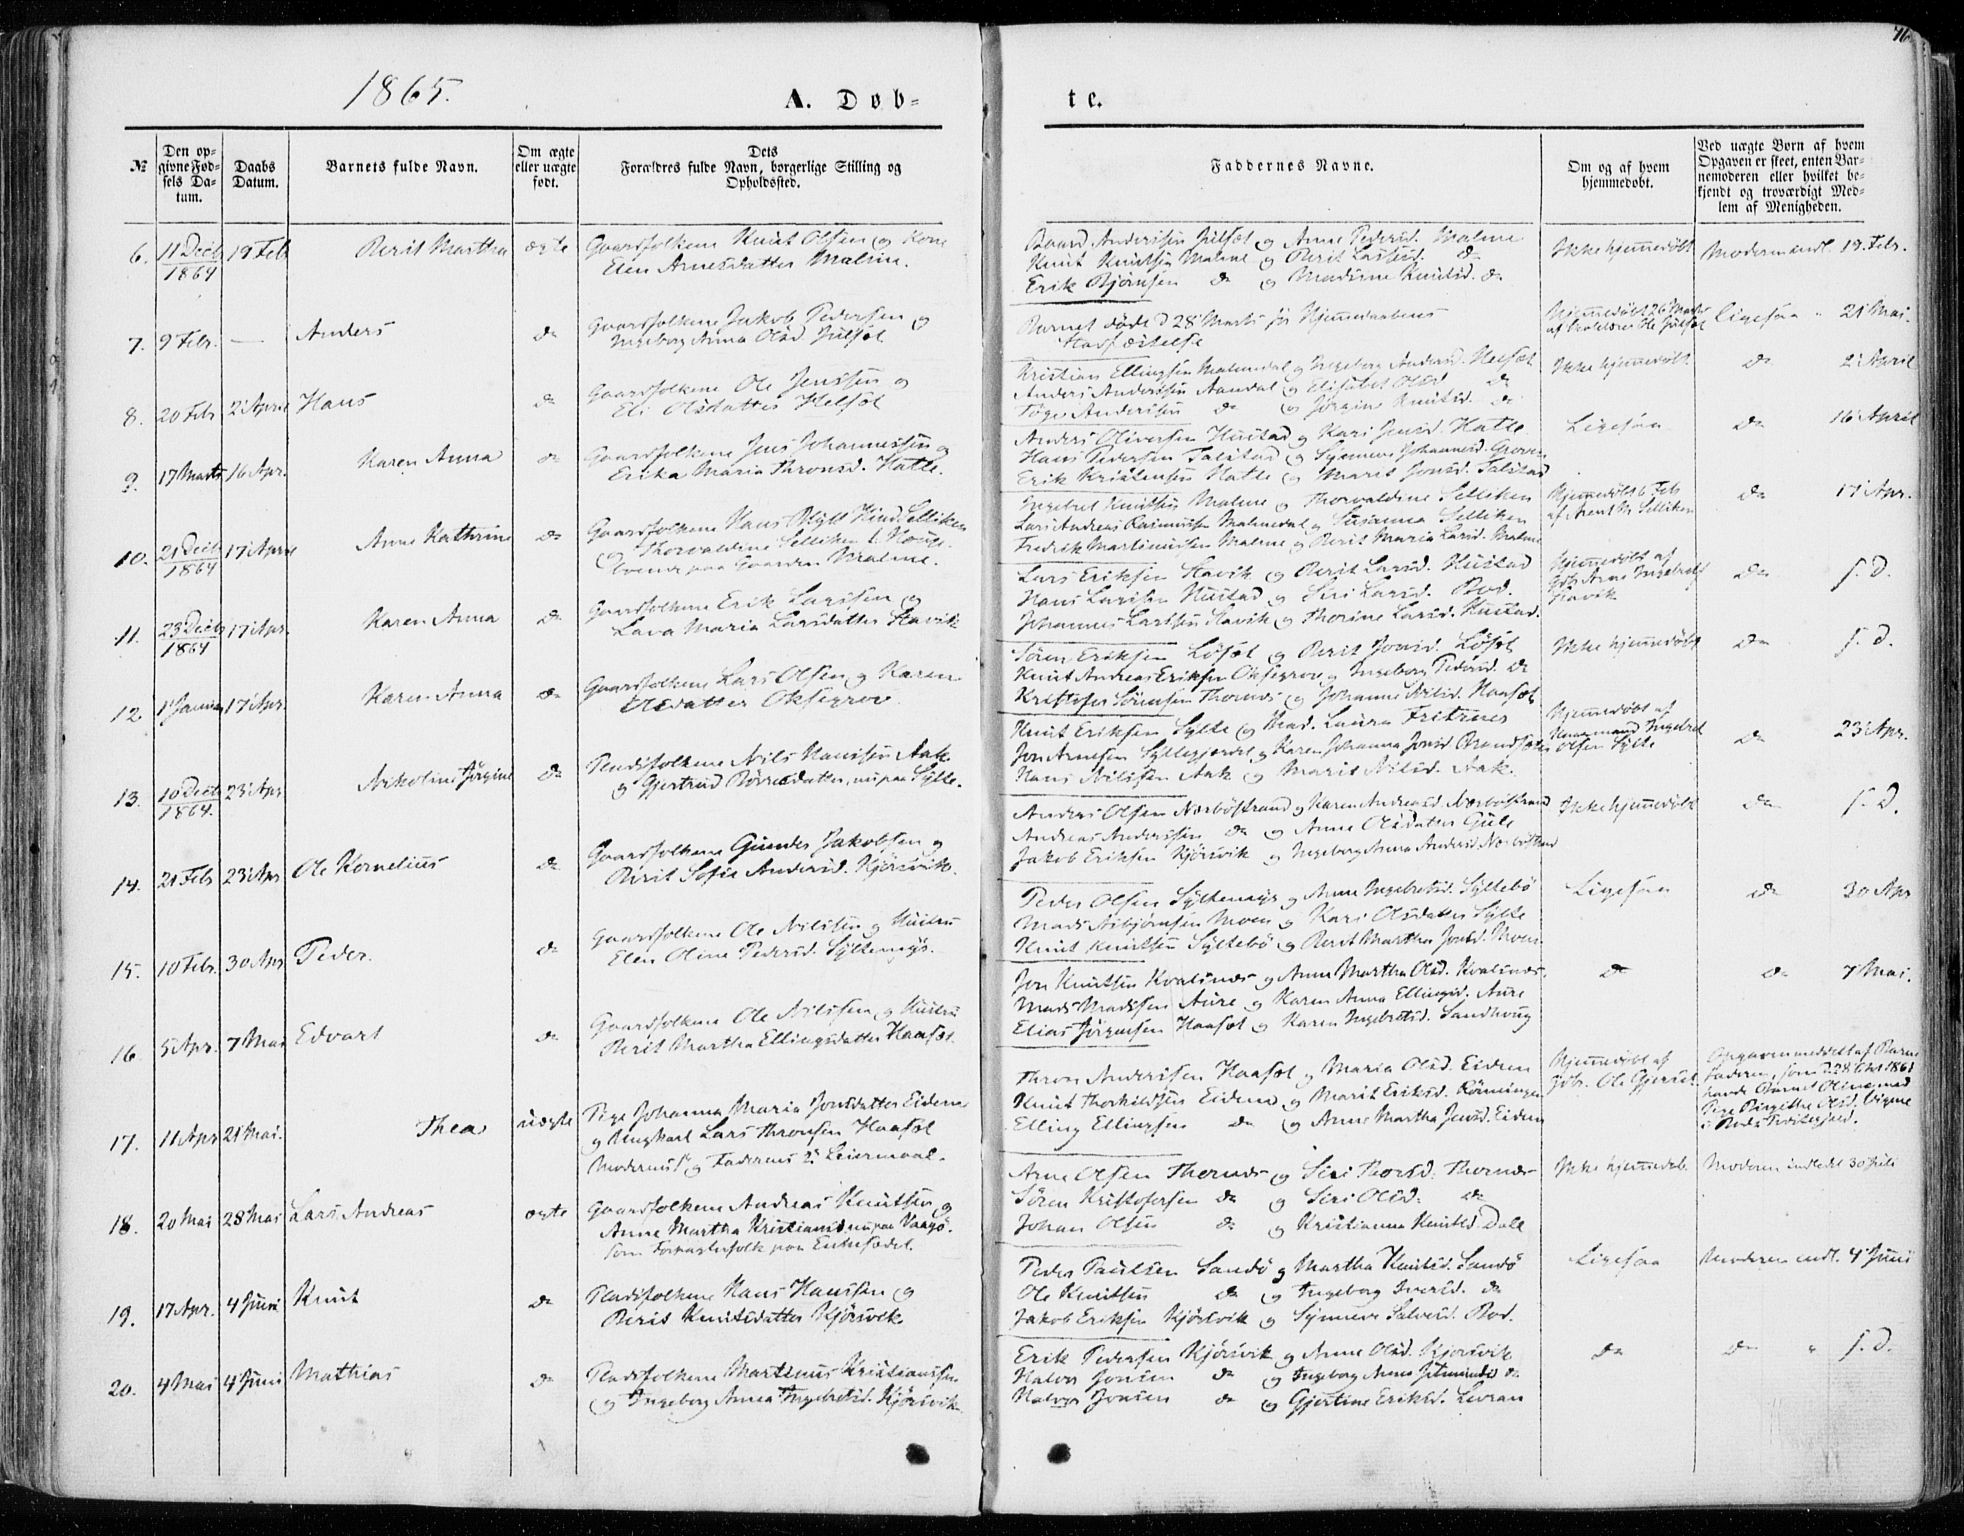 76
1865.
A. Døb-
te.
№
Den op-
givne Fød-
sels Da-
tum.
Daabs
Datum.
Barnets fulde Navn.
Om ægte
eller uægte
født.
Dets
Forældres fulde Navn, borgerlige Stilling og
Opholdssted.
Faddernes Navne.
Om og af hvem
hjemmedøbt.
Ved uægte Børn af hvem
Opgaven er skeet, enten Bar-
nemoderen eller hvilket be-
kjendt og troværdigt Med-
lem af Menigheden.
6. 11 Decb 1864 19 Feb Berit Martha ægte Gaardfolkene Knut Olsen og Kone
Elen Arnesdatter Malme.
Baard Anderssen Julsæt og Anne Pedersd. Malme
Knut Knutsen Malme og Berit Larssd. do
Erik Bjørnsen do og Madsine Knutsd. do
Ikke hjemmedøbt Moderen indl. 19. Febr.
7. 9 Febr. — Anders do Gaardfolkene Jakob Pedersen og
Ingeborg Anna Olsd. Julsæt
Barnet døde d 28 Marts før Hjemmedaabens
Stadfæstelse
Hjemmedøbt 26 Marts
af Ole Julsæt
Ligesaa " 21 Mai.
8. 20 Feb. 2 April Hans do Gaardfolkene Ole Jenssen og
Eli Olsdatter Helsæt
Kristian Ellingsen Malmedal og Ingeborg Andersd. Helsæt
Anders Anderssen Aandal og Elisabet Olsd. do
Tøge Anderssen do og Jørgine Knutsd. do
Ikke hjemmedøbt do 2 April
9. 17 Marts 16 Apr. Karen Anna do Gaardfolkene Jens Johannessen og
Erika Maria Thronsd. Hatle.
Anders Oliversen Hustad og Kari Jensd. Hatle
Hans Pedersen Talstad og Synneve Johannesd. Groven
Erik Kristensen Hatle og Marit Jonsd. Talstad
Ligesaa do 16 April
10. 21 Decb 1864 17 April Anne Kathrine do Gaardfolkene Hans Lind Selliken
og Thorvaldine Selliken f. Houge
boende paa Gaarden Malme.
Ingebret Knutsen Malme og Thorvaldine Selliken
Lars Andreas Rasmussen Malmedal og Susanna Selliken
Fredrik Martinussen Malme og Berit Maria Larsd. Malme
Hjemmedøbt 6 Feb
af Arent M. Selliken
do 17 Apr.
11. 23 Decb 1864 17 Apr. Karen Anna do Gaardfolkene Erik Larssen og
Lava Maria Larsdatter Stavik
Lars Eriksen Stavik og Berit Larsd. Hustad
Hans Larssen Hustad og Siri Larsd. Bod.
Johannes Larssen Stavik og Thorine Larsd. Hustad.
Hjemmedøbt af
Gbr. Arne Ingebrets
Stavik
do s. D.
12. 1 Januar 17 Apr. Karen Anna do Gaardfolkene Lars Olsen og Karen
Olsdatter Oksegrov
Sören Eriksen Løsæt og Berit Jonsd. Løsæt
Knut Andreas Eriksen Oksegrov og Ingeborg Pedersd. do
Kristofer Sörensen Thornes og Johanna Nilsd. Haasæt
Ikke hjemmedøbt do s. D.
13. 10 Decb 1864. 23 Apr Nikoline Jørgine do Pladsfolkene Nils Hanssen Aak
og Gjertrud Børresdatter, nu paa Sylte.
Knut Eriksen Sylte og Mad. Laura Fritznes
Jon Arnesen Syltegjerdet og Karen Johanna Jonsd. Brandsæter
Hans Nilssen Aak og Marit Nilsd. Aak.
Hjemmedøbt af
Ingebret
Olsen Sylte
do 23 Apr.
14. 21 Feb 23 Apr Ole Kornelius do Gaardfolkene Gunder Jakobsen og
Berit Sofie Andersd. Kjørsvik.
Anders Olsen Nærbøstrand og Karen Andreasd. Nærbøstrand
Andreas Anderssen do og Anne Olsdatter Gule
Jakob Eriksen Kjørsvik og Ingeborg Anna Andersd. Nærbøstrand
Ikke hjemmedøbt do s. D.
15. 10 Febr. 30 Apr Peder. do Gaardfolkene Ole Nilssen og Hustru
Elen Oline Pedersd. Syltemyr.
Peder Olsen Syltemyr og Anne Ingebretsd. Syltebø
Mads Asbjørnsen Moen og Kari Olsdatter Sylte
Knut Knutsen Syltebø og Berit Martha Jonsd. Moen.
Ligesaa do 30 Apr
16. 5 Apr. 7 Mai Edvart do Gaardfolkene Ole Nilssen og Hustru
Berit Martha Ellingsdatter Haasæt.
Jon Knutsen Kvalsnæs og Anne Martha Olsd. Kvalsnæs.
Mads Madssen Aure og Karen Anna Ellingsd. Aure
Elias Jørgensen Haasæt og Karen Ingebretsd. Sandhoug
do do 7 Mai.
17. 11 Apr 21 Mai. Thea uægte Pige Johanna Maria Jonsdatter Eidem
og Ungkarl Lars Thronsen Haasæt
Moderens 1ste og Faderens 2det Leiermaal.
Thron Anderssen Haasæt og Maria Olsd. Eidem
Knut Thorkildsen Eidem og Marit Eriksd. Rønningen
Elling Ellingsen do og Anne Martha Jensd. Eidem
Hjemmedøbt af
Gbr. Ole Gjerset.
Opgaven meddelt af Barne-
faderen, som d. 28 1861
havde Barnet Oline med
Pige Birgithe Olsd. Vigene
i Præstegjeld.
18. 20 Mai 28 Mai Lars Andreas ægte Gaardfolkene Andreas Knutsen og
Anne Martha Kristiansd. nu paa Vaagø.
som Forpagterfolk paa Enkesædet.
Arne Olsen Thornæs og Siri Thorsd. Thornæs
Sören Kristofersen do og Siri Olsd. do
Johan Olsen do og Kristianna Knutsd. Dale
Ikke hjemmedøbt Moderen indledet 30 Juli
19. 17 Apr. 4 Juni Knut do Pladsfolkene Hans Hanssen og
Berit Knutsdatter Kjørsvik
Peder Paulsen Sandø og Martha Knutsd. Sandø
Ole Knutsen do og Ingeborg Iversd. do
Jakob Eriksen Kjørsvik og Synneve Salvesd. Bod.
Ligesaa Moderen indl. 4 Juni
20. 4 Mai 4 Juni Mathias do Pladsfolkene Martinus Kristianssen
og Ingeborg Anna Ingebretsd. Kjørsvik.
Erik Pedersen Kjørsvik og Anne Olsd. Kjørsvik
Halvor Jonsen do og Ingeborg Anna do
Halvor Jonsen do og Gjertine Eriksd. Levran
do do " s. D.